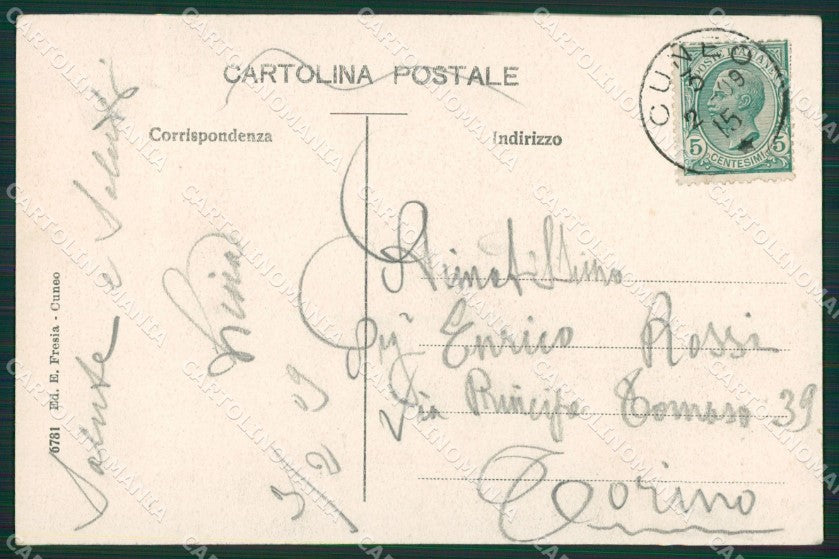 CARTOLINA POSTALE
Corrispondenza
Indirizzo
CUNEO
2 3 09
15
POSTE ITALIANE
5 CENTESIMI 5
6781 Ed. E. Fresia - Cuneo
e Saluti
3/2 09
Sigr Enrico Rossi
Via Principe Tomaso 39
Torino
CARTOLINOMANIA